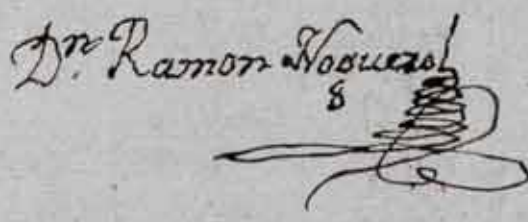 Dn. Ramon Noguerol